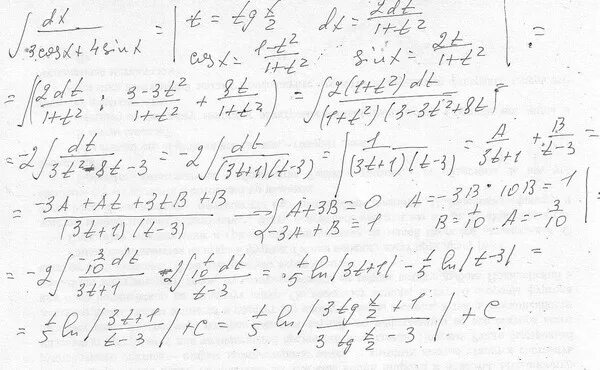 ∫ dx/(3cosx+4sinx) = | t = tg x/2   dx = 2dt/(1+t²)   cosx = (1-t²)/(1+t²)   sinx = 2t/(1+t²) | =
= ∫(2dt/(1+t²) : (3-3t²)/(1+t²) + 8t/(1+t²)) = ∫ 2(1+t²)dt/((1+t²)(3-3t²+8t)) =
= -2∫ dt/(3t²-8t-3) = -2∫ dt/((3t+1)(t-3)) = | 1/((3t+1)(t-3)) = A/(3t+1) + B/(t-3) =
= (-3A+At+3tB+B)/((3t+1)(t-3)) → { A+3B=0   -3A+B=1   A=-3B   10B=1   B=1/10   A=-3/10 | =
= -2∫ (-3/10 dt)/(3t+1) - 2∫ (1/10 dt)/(t-3) = 1/5 ln|3t+1| - 1/5 ln|t-3| =
= 1/5 ln|(3t+1)/(t-3)| + C = 1/5 ln|(3tg x/2 + 1)/(3 tg x/2 - 3)| + C